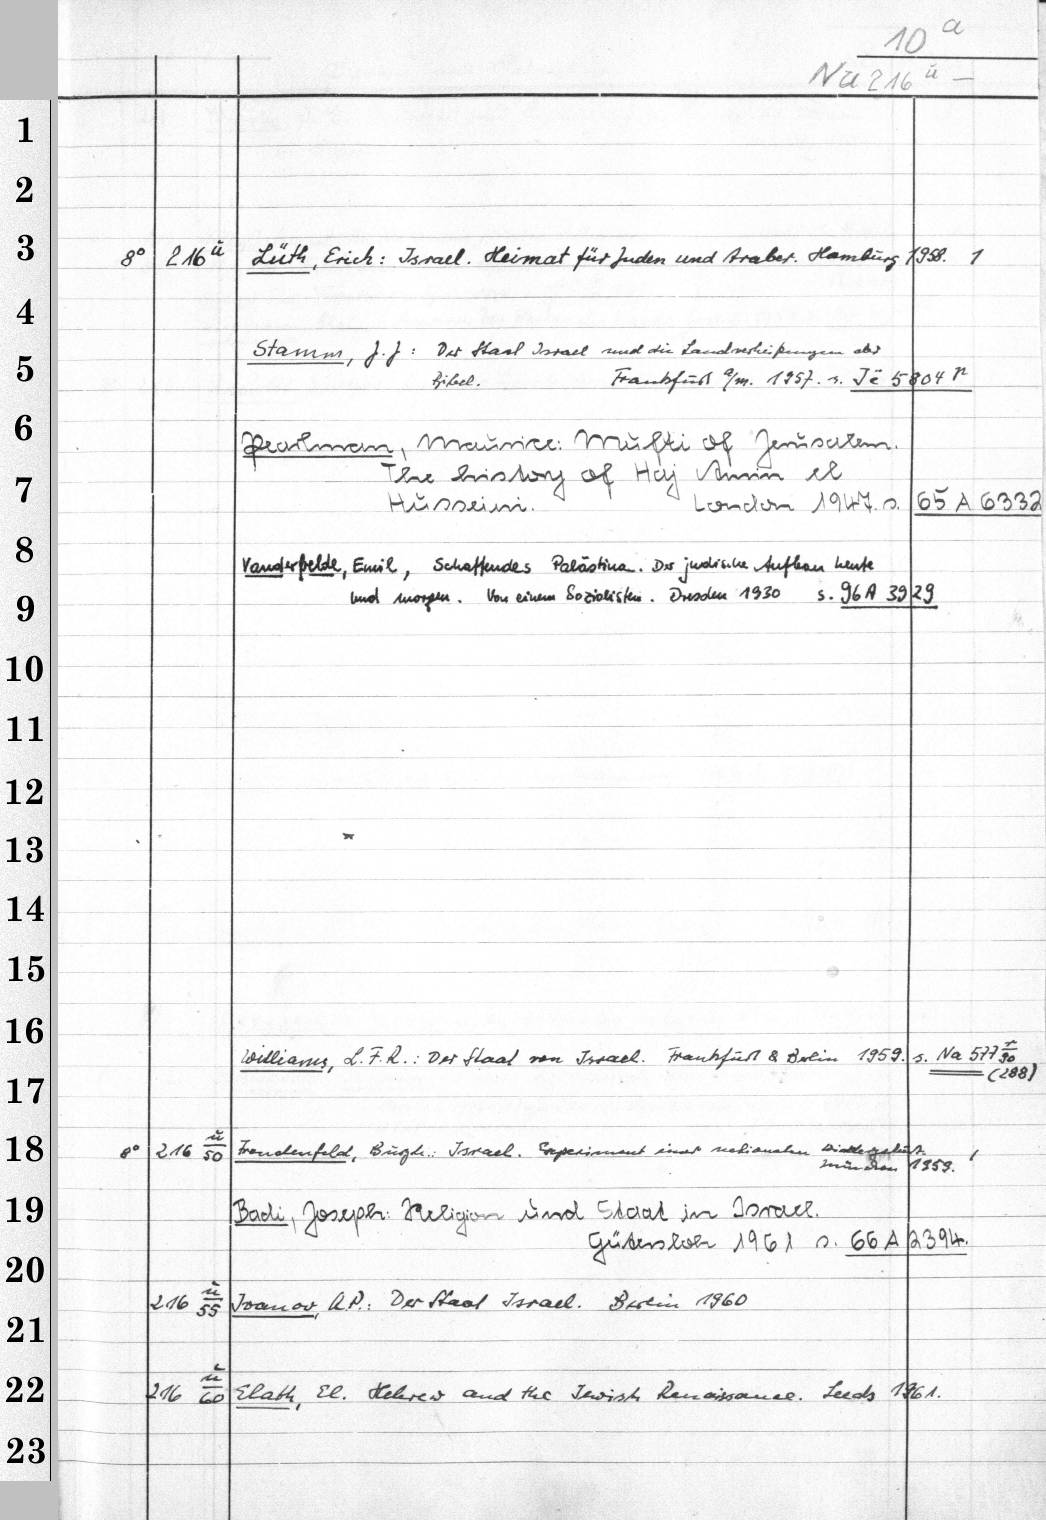 10 a
Na 216 ü —
1
2
3
8° 216 ü Lüth, Erich: Israel. Heimat für Juden und Araber. Hamburg 1958. 1
4
Stamm, J.J: Der Staat Israel und die Landverheißungen der
5
Bibel. Frankfurt a/m. 1957. s. Jë 5804 r
6
Pearlman, Maurice: Mufti of Jerusalem.
The history of Haj Amin el
7
Husseini. London 1947. s. 65 A 6332
8
Vanderfelde, Emil, Schaffendes Palästina. Der jüdische Aufbau heute
9
und morgen. Von einem Sozialisten. Dresden 1930 s. 96 A 3929
10
11
12
13
14
15
16
Williams, L.F.R.: Der Staat von Israel. Frankfurt & Berlin 1959. s. Na 577 r/90
(288)
17
18
8° 216 ü/50 Freudenfeld, Burgh.: Israel. Experiment einer nationalen
München 1959. 1
19
Badi, Joseph: Religion und Staat in Israel.
Gütersloh 1961 s. 66 A 2394.
20
216 ü/55 Ivanov, A.P.: Der Staat Israel. Berlin 1960
21
22
216 ü/60 Elath, El. Hebrew and the Jewish Renaissance. Leeds 1961.
23